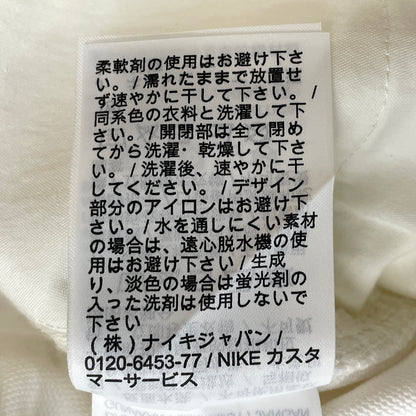 柔軟剤の使用はお避け下さ
い。/ 濡れたままで放置せ
ず速やかに干して下さい。/
同系色の衣料と洗濯して下
さい。/ 開閉部は全て閉め
てから洗濯・乾燥して下さ
い。/ 洗濯後、速やかに干
してください。/ デザイン
部分のアイロンはお避け下
さい。/ 水を通しにくい素材
の場合は、遠心脱水機の使
用はお避け下さい / 生成
り、淡色の場合は蛍光剤の
入った洗剤は使用しないで
下さい
(株) ナイキジャパン /
0120-6453-77 / NIKE カスタ
マーサービス